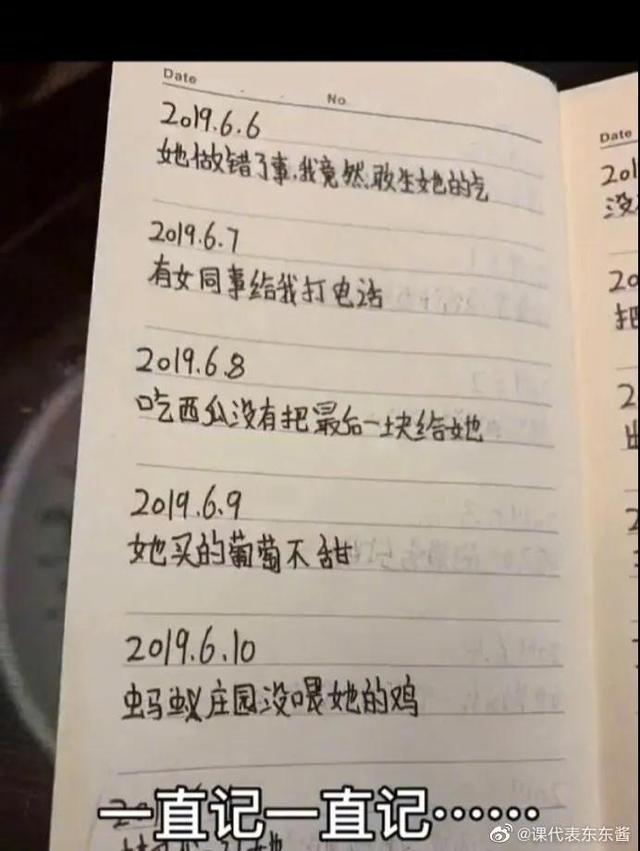 Date
No.
2019.6.6
她做错了事,我竟然敢生她的气
2019.6.7
有女同事给我打电话
2019.6.8
吃西瓜没有把最后一块给她
2019.6.9
她买的葡萄不甜
2019.6.10
蚂蚁庄园没喂她的鸡
一直记一直记……
Date
201
没
20
把
2
2
@课代表东东酱